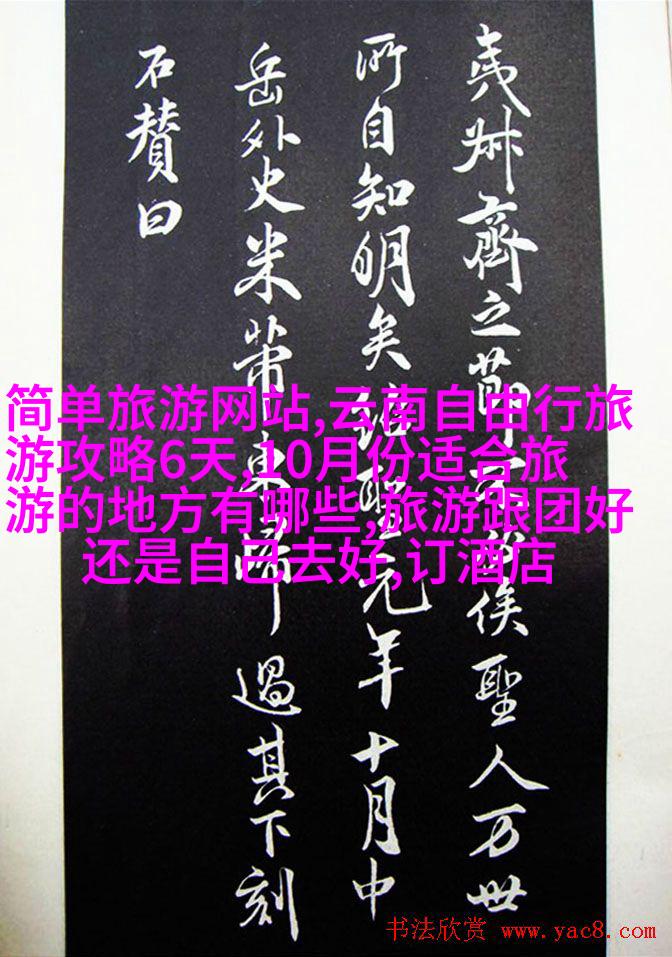 夷齐之节可俟聖人万世
所自知明矣绍聖元年十月中
岳外史米芾東歸過其下刻
石賛曰
简单旅游网站,云南自由行旅
游攻略6天,10月份适合旅
游的地方有哪些,旅游跟团好
还是自己去好,订酒店
书法欣赏 www.yac8.com